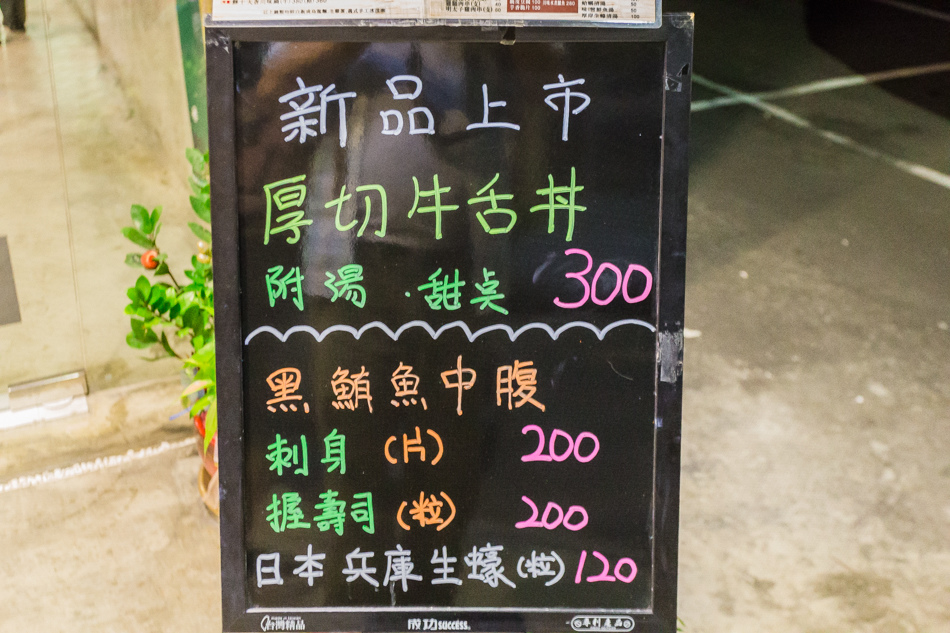 新品上市
厚切牛舌丼
附湯·甜点 300
黑鮪魚中腹
刺身(片) 200
握壽司(粒) 200
日本兵庫生蠔(粒) 120
台灣精品 成功 SUCCESS. 專利產品